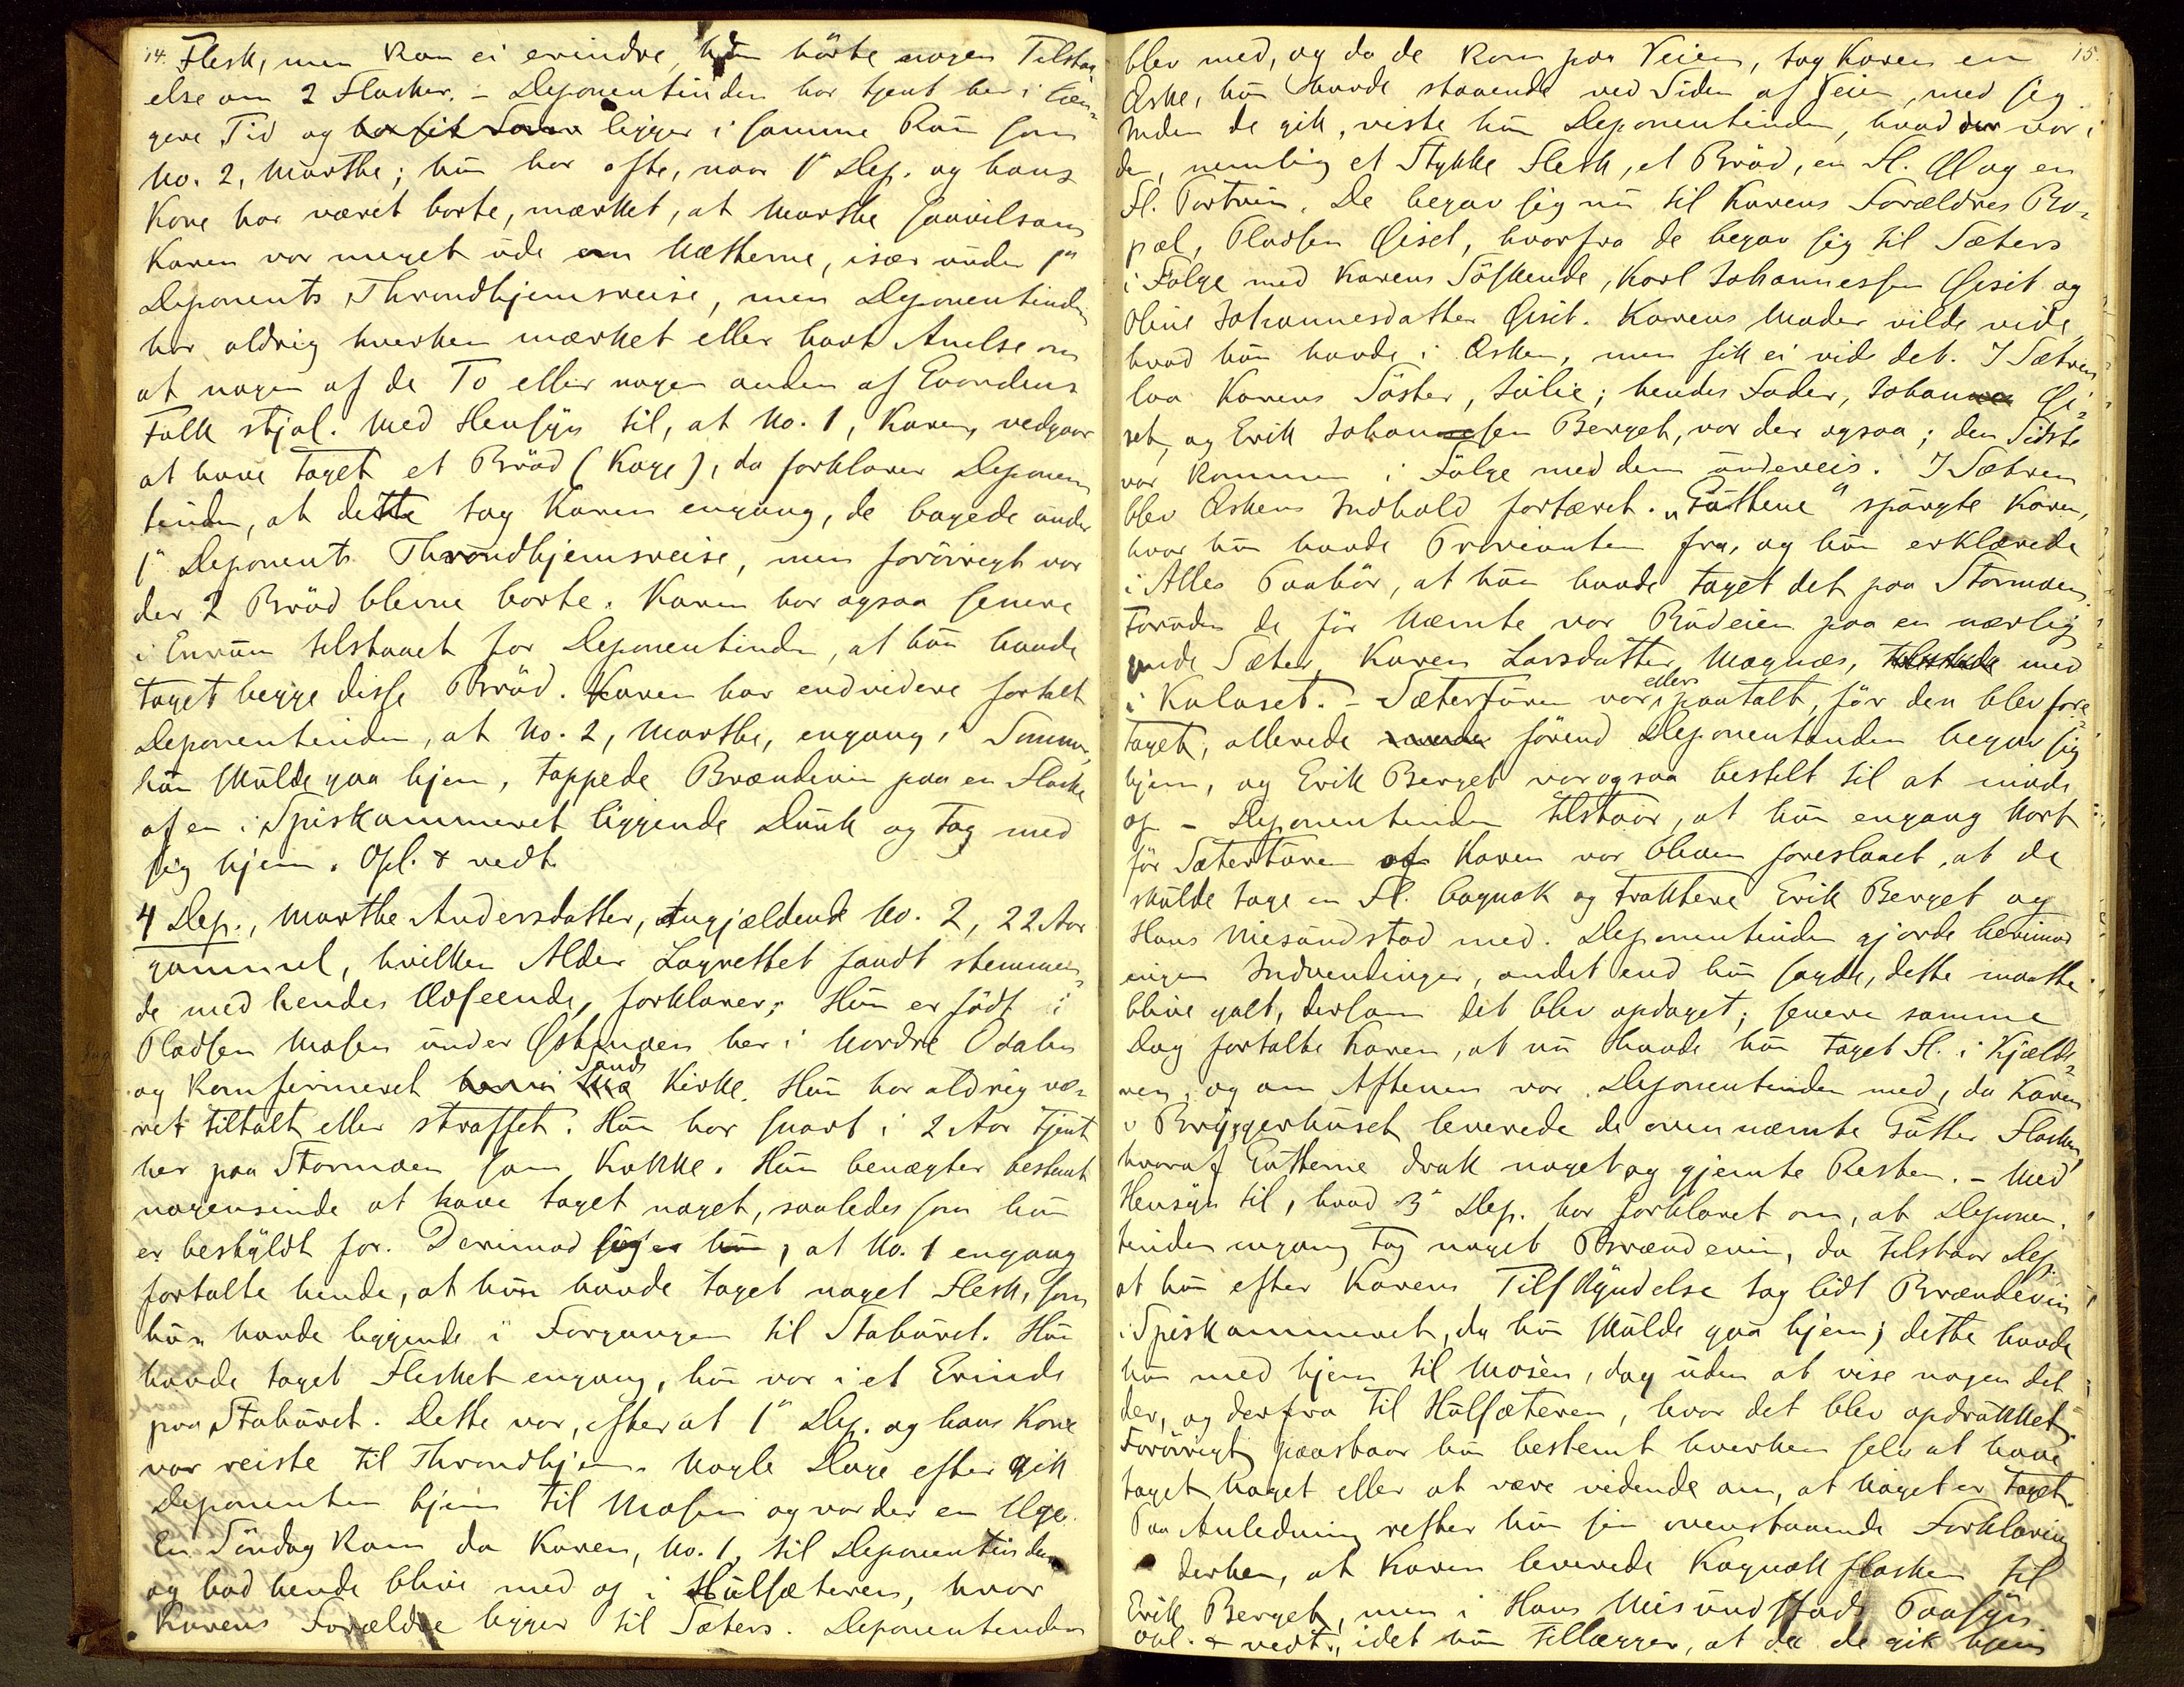 14.
Flesk, men kan ei erindre, hun hørte nogen Tilstaa-
else om 2 Flasker. – Deponentinden har tjent her i læn-
gere Tid og har sit ligger i samme Rum som
No. 2, Marthe; hun har ofte, naar 1ste Dep. og hans
Kone har været borte, mærket, at Marthe saavelsom
Karen var meget ude om Nætterne, især under 1ste
Deponents Throndhjemsreise, men Deponentinden
har aldrig hverken mærket eller havt Anelse om
at nogen af de To eller nogen anden af Gaardens
Folk stjal. Med Hensyn til, at No. 1, Karen, vedgaar
at have taget et Brød (Kage), da forklarer Deponen
tinden, at dette tog Karen engang, de bagede under
1ste Deponents Throndhjemsreise, men forøvrigt var
der 2 Brød blevne borte. Karen har ogsaa senere
i Enrum tilstaaet for Deponentinden, at hun havde
taget begge disse Brød. Karen har endvidere fortalt
Deponentinden, at No. 2, Marthe, engang i Sommer,
hun skulde gaa hjem, tappede Brændevin paa en Flaske
af en i Spiskammeret liggende Dunk og tog med
sig hjem. Opl. & vedt.
4 Dep., Marthe Andersdatter, Angjældende No. 2, 22 Aar
gammel, hvilken Alder Lagrettet fandt stemmen-
de med hendes Udseende, forklarer: Hun er født i
Pladsen Mosen under Østhagen her i Nordre Odalen
og konfirmeret Sands Kirke. Hun har aldrig væ-
ret tiltalt eller straffet. Hun har snart i 2 Aar tjent
her paa Stormoen som Kokke. Hun benægter bestemt
nogensinde at have taget noget, saaledes som hun
er beskyldt for. Derimod siger hun, at No. 1 engang
fortalte hende, at hun havde taget noget Flesk, som
hun havde liggende i Forgangen til Stabüret. Hun
havde taget Flesket engang, hun var i et Erinde
paa Stabüret. Dette var, efterat 1ste Dep. og hans Kone
var reiste til Throndhjem. Nogle Dage efter gik
Deponenten hjem til Mosen og var der en Uge.
En Søndag kom da Karen, No. 1, til Deponentinden
og bad hende blive med op i Hülsæteren, hvor
Karens Forældre ligger til Sæters. Deponentinden
15.
blev med, og da de kom paa Veien, tog Karen en
Æske, hun havde staaende ved Siden af Veien, med sig.
Inden de gik, viste hun Deponentinden, hvad der var i
den, nemlig et Stykke Flesk, et Brød, en Fl. Øl og en
Fl. Portvin. De begav sig nu til Karens Forældres Bo-
pæl, Pladsen Øiset, hvorfra de begav sig til Sæters
i Følge med Karens Søskende, Karl Johannessen Øiset og
Oline Johannesdatter Øiset. Karens Moder vilde vide,
hvad hun havde i Æsken, men fik ei vide det. I Sætren
laa Karens Søster, Julie; hendes Fader, Johan Øi-
set, og Erik Johansen Berget, var der ogsaa; den Sidste
var kommen i Følge med dem underveis. I Sætren
blev Æskens Indhold fortæret. „Gutterne" spürgte Karen,
hvor hun havde Provianten fra, og hun erklærede
i Alles Paahør, at hun havde taget det paa Stormoen.
Foruden de før Nævnte var Büdeien paa en nærlig
gende Sæter, Karen Larsdatter Magnæs, med
i Kalaset. – Sæterturen var ellers paatalt, før den blev fore-
taget, allerede førend Deponentinden begav sig
hjem, og Erik Berget var ogsaa bestilt til at møde
op – Deponentinden tilstaar, at hun engang kort
før Sæterturen af Karen var bleven foreslaaet, at de
skulde tage en Fl. Cognak og traktere Erik Berget og
Hans Misundstad med. Deponentinden gjorde herimod
ingen Indvendinger, andet end hun sagde, dette maatte
blive galt, dersom det blev opdaget; senere samme
Dag fortalte Karen, at nu havde hun taget Fl. i Kjælde-
ren, og om Aftenen var Deponentinden med, da Karen
i Bryggerhuset leverede de ovennævnte Gutter Flasken,
hvoraf Gutterne drak noget og gjemte Resten. – Med
Hensyn til, hvad 3die Dep. har forklaret om, at Deponen.
tinden engang tog noget Brændevin, da tilstaar Dep.
at hun efter Karens Tilskyndelse tog lidt Brændevin
i Spiskammeret, da hun skulde gaa hjem; dette havde
hun med hjem til Mosen, dog uden at vise nogen det
der, og derfra til Hülsæteren, hvor det blev opdrukket.
Forøvrigt paastaar hun bestemt hverken selv at have
taget Noget eller at være vidende om, at Noget er taget.
Paa Anledning retter hun sin ovenstaaende Forklaring
derhen, at Karen leverede Kognakflasken til
Erik Berget, men i Hans Misundstads Paasyn
Opl. & vedt., idet hun tillægger, at da de gik hjem